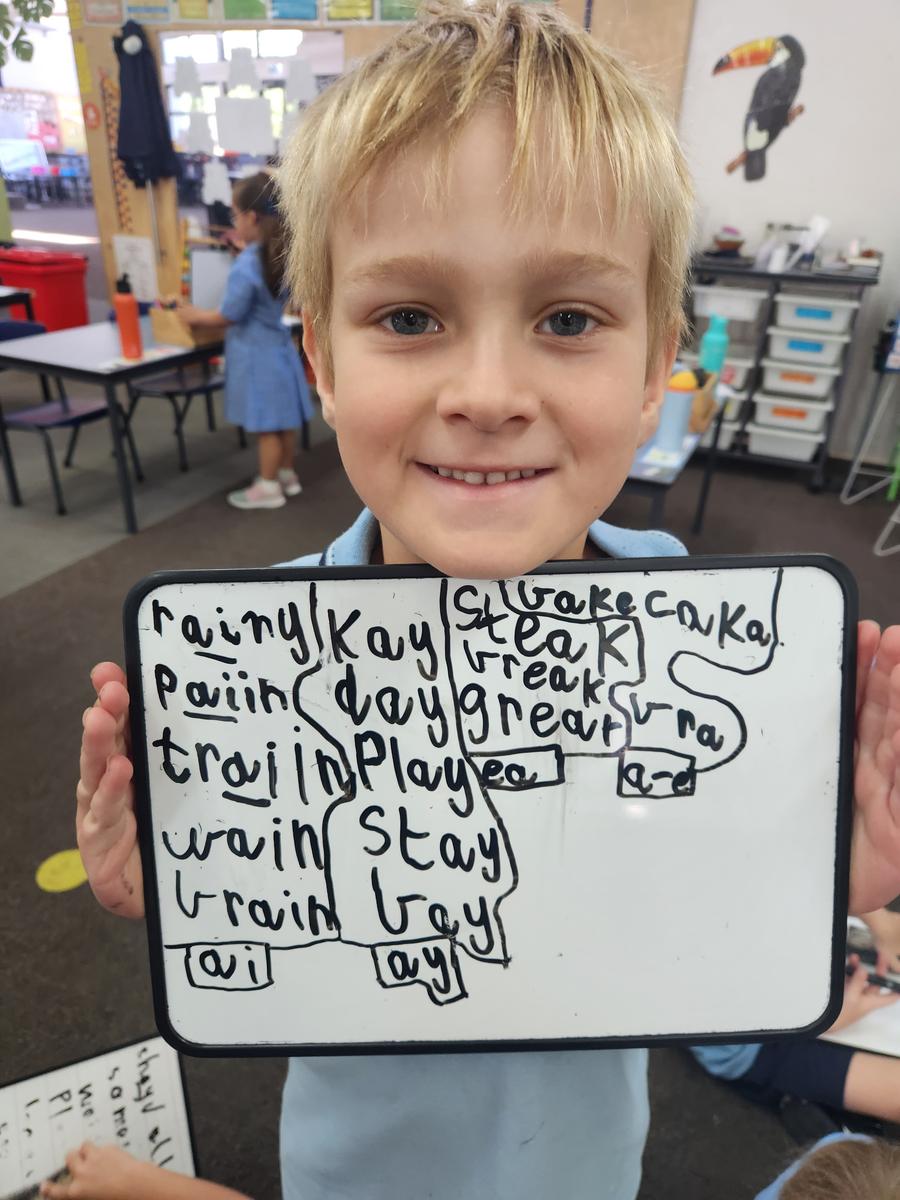 rainy
paiin
traiin
wain
brain
ai
Kay
day
Play
Stay
bay
ay
Steak
break
great
ea
bake caka
bra
a-e